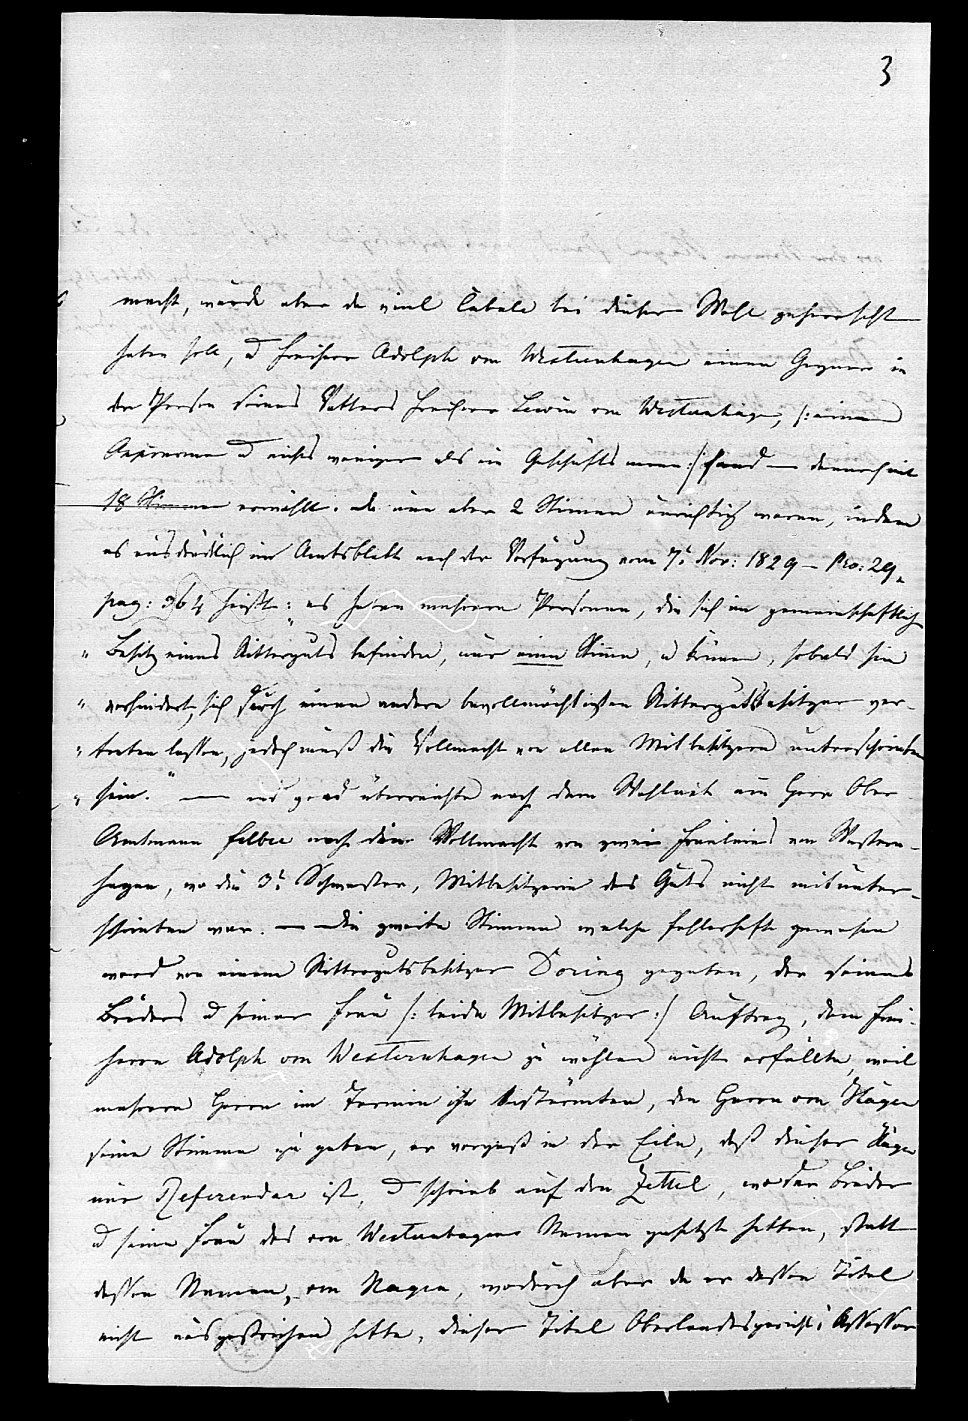 3
macht, wurde aber da viel Cabale bei dieser Wahl geherrscht
haben soll, d Freiherr Adolph von Westernhagen einen Gegner in
der Person seines Vetters Freiherr Lewin von Westernhagen, /: einem
und nichts weniger als ein Geschäftsmann :/ fand — dennoch mit
18 Stimmen erwählt. da nun aber 2 Stimmen unrichtig waren, indem
es ausdrücklich im Amtsblatt nach der Verfügung vom 7t Nov: 1829 – No: 29.
pag: 364 heißt: „es haben mehrere Personen, die sich im gemeinschaftlich
„Besitz eines Ritterguts befinden, nur eine Stimme, u können, sobald sie
„verhindert, sich durch einen andern bevollmächtigten Rittergutsbesitzer ver-
„treten lassen, jedoch muß die Vollmacht von allen Mitbesitzern unterschrieben
„sein." — und überreichte nach dem Wahlact ein Herr Ober
Amtmann noch eine Vollmacht von zweien Fräuleins von Western-
hagen, wo die 3t Schwester, Mitbesitzerin des Guts nicht mit unter-
schrieben war. — Die zweite Stimme welche fehlerhaft gewesen
ward von einem Rittergutsbesitzer Döring gegeben, der seines
Bruders d seiner Frau /: beide Mitbesitzer :/ Auftrag, den Frei-
herrn Adolph von Westernhagen zu wählen nicht erfüllte, weil
mehrere Herrn im Termin ihn bestürmten, den Herrn von Hagen
seine Stimme zu geben, er vergaß in der Eile, daß dieser Hagen
nur Referendar ist, d schrieb auf den Zettel, wo der Bruder
d seine Frau des von Westernhagens Namen gesetzt hatten, statt
dessen Namen, von Hagen, wodurch aber da er dessen Titel
nicht ausgestrichen hatte, dieser Titel Oberlandesgerichts Assessor